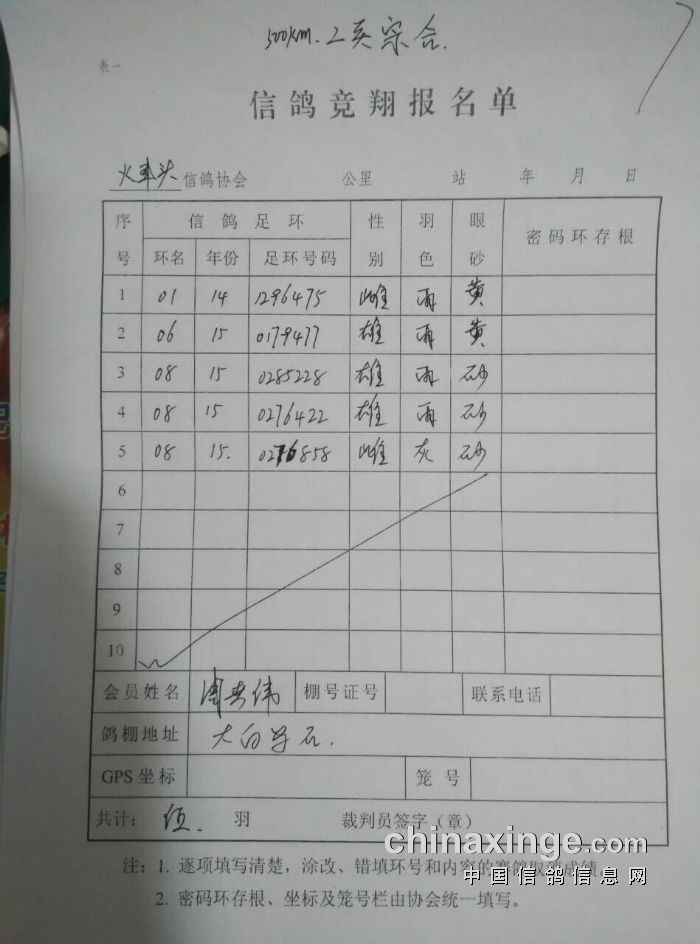 500km.二关综合.
表一
信鸽竞翔报名单
火车头信鸽协会 公里 站 年 月 日
序号 信鸽足环 性别 羽色 眼砂 密码环存根
环名 年份 足环号码
1 01 14 1296475 雌 雨 黄
2 06 15 0179477 雄 雨 黄
3 08 15 0285228 雄 雨 砂
4 08 15 0276422 雄 雨 砂
5 08 15. 0276858 雌 灰 砂
6
7
8
9
10
会员姓名 棚号证号 联系电话
鸽棚地址
GPS坐标 笼号
共计: 伍. 羽 裁判员签字(章)
注:1. 逐项填写清楚,涂改、错填环号和内容的赛鸽取消成绩。
2. 密码环存根、坐标及笼号栏由协会统一填写。
chinaxinge.com
中国信鸽信息网